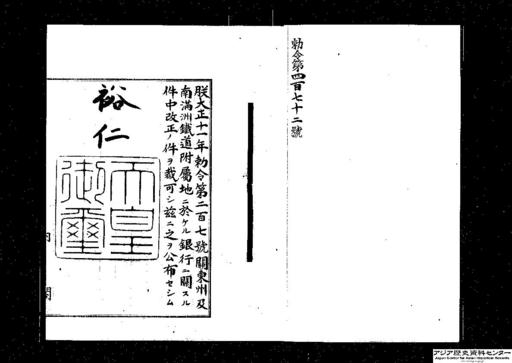 勅令第四百七十二號
朕大正十一年勅令第二百七號關東州及
南滿洲鐵道附屬地ニ於ケル銀行ニ關スル
件中改正ノ件ヲ裁可シ茲ニ之ヲ公布セシム
裕仁
天皇
御璽
內閣
アジア歴史資料センター
Japan Center for Asian Historical Records